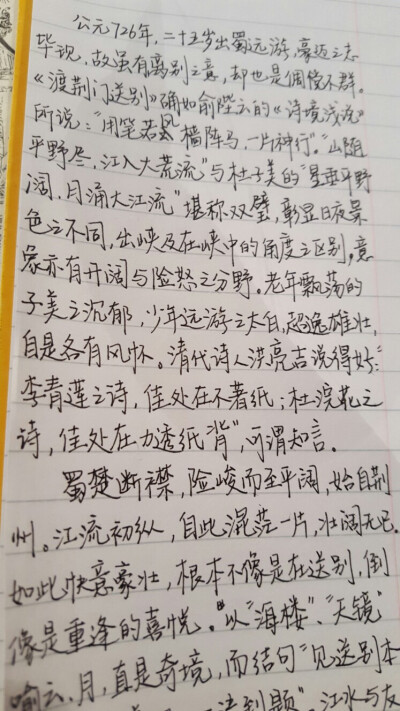 公元726年,二十五岁出蜀远游,豪迈之志
毕现,故虽有离别之意,却也是倜傥不群。
《渡荆门送别》确如俞陛云的《诗境浅说》
所说:“用笔若风樯阵马,一片神行”。“山随
平野尽,江入大荒流”与杜子美的“星垂平野
阔,月涌大江流”堪称双璧,彰显日夜景
色之不同,出峡及在峡中的角度之区别,意
象亦有开阔与险怒之分野。老年飘荡的
子美之沉郁,少年远游之太白,超逸雄壮,
自是各有风怀。清代诗人洪亮吉说得好:“
李青莲之诗,佳处在不著纸;杜浣花之
诗,佳处在力透纸背”,可谓知言。
蜀楚断襟,险峻而至平阔,始自荆
州。江流初纵,自此混茫一片,壮阔无已。
如此快意豪壮,根本不像是在送别,倒
像是重逢的喜悦。以“海楼”、“天镜”
喻云、月,直是奇境,而结句“见送别本
法到题”,江水与友